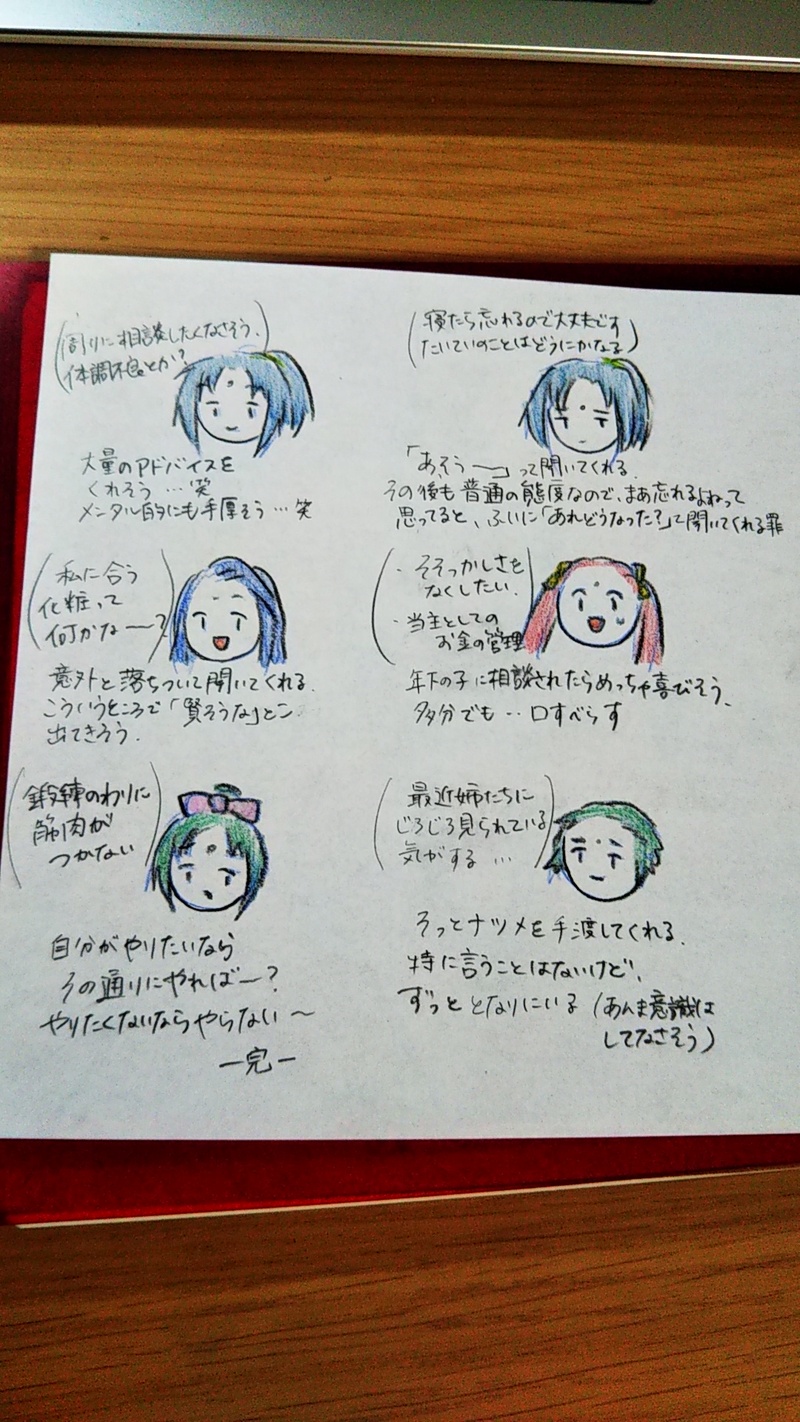 (周りに相談したくなさそう、
体調不良とか?)
大量のアドバイスを
くれそう…笑
メンタル的にも手厚そう…笑
(寝たら忘れるので大丈夫です
たいていのことはどうにかなる)
「あそう――」って聞いてくれる
その後も普通の態度なので、まあ忘れるよねって
思ってると、ふいに「あれどうなった?」て聞いてくれる罪
(私に合う
化粧って
何かな――?)
意外と落ちついて聞いてくれる。
こういうところで「賢そうな」とこ
出てきそう。
(・そそっかしさを
なくしたい。
・当主としての
お金の管理)
年下の子に相談されたらめっちゃ喜びそう、
多分でも‥口すべらす
(鍛錬のわりに
筋肉が
つかない)
自分がやりたいなら
その通りにやればー?
やりたくないならやらない〜
―完―
(最近姉たちに
じろじろ見られている
気がする…)
そっとナツメを手渡してくれる。
特に言うことはないけど、
ずっととなりにいる(あんま意識は
してなさそう)